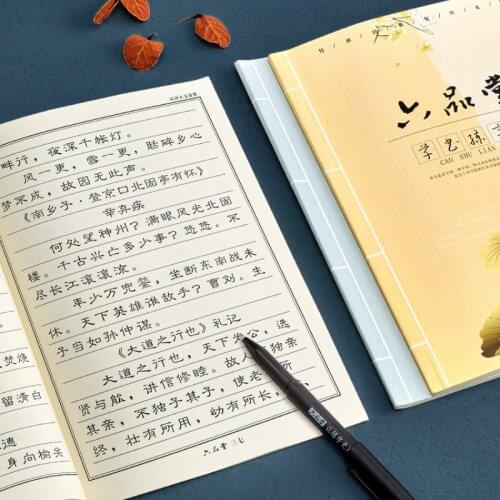 畔行，夜深千帐灯。
风一更，雪一更，聒碎乡心
梦不成，故园无此声。
《南乡子·登京口北固亭有怀》
辛弃疾
何处望神州？满眼风光北固
楼。千古兴亡多少事？悠悠。不
尽长江滚滚流。
年少万兜鍪，坐断东南战未
休。天下英雄谁敌手？曹刘。生
子当如孙仲谋。
《大道之行也》礼记
大道之行也，天下为公，选
贤与能，讲信修睦。故人不独亲
其亲，不独子其子，使老有所
终，壮有所用，幼有所长，
六品堂 三七
焚燒
留清白
德
身向榆关
六品堂
学艺练
CAO SHU LIAN